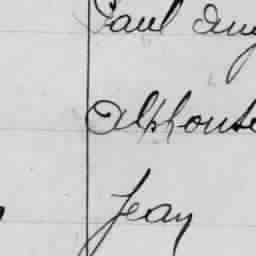 Paul Aug
Alphonse
Jean